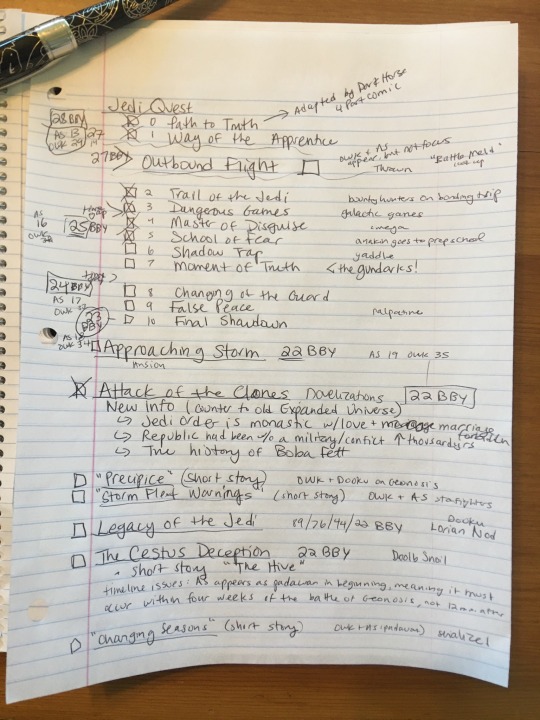 Jedi Quest
→ Adapted by Dark Horse
4 part comic
28 BBY
AS 13
OWK 29
27
14
0 Path to Truth
1 Way of the Apprentice
27 BBY > Outbound Flight
OWK + AS
appear, but not focus
Thrawn
"Battle Meld"
look up
2 Trail of the Jedi bounty hunters on bonding trip
3 Dangerous Games galactic games
4 Master of Disguise omega
5 School of Fear anakin goes to prep school
6 Shadow Trap yaddle
7 Moment of Truth < the gundarks!
AS
16
OWK
25 BBY
24 BBY
AS 17
OWK
8 Changing of the Guard
9 False Peace palpatine
10 Final Showdown
23
BBY
AS 18
OWK 34
Approaching Storm 22 BBY AS 19 OWK 35
Ansion
Attack of the Clones Novelizations 22 BBY
New Info (counter to old Expanded Universe)
↳ Jedi Order is monastic w/love + marriage forbidden
↳ Republic had been w/o a military/conflict ↑ thousand yrs
↳ The history of Boba Fett
"Precipice" (short story) OWK + Dooku on Geonosis
"Storm Fleet Warnings" (short story) OWK + AS starfighters
Legacy of the Jedi 89/76/44/22 BBY Dooku
Lorian Nod
The Cestus Deception 22 BBY Doolb Snoil
· short story "The Hive"
timeline issues: AS appears as padawan in beginning, meaning it must
occur within four weeks of the battle of Geonosis, not 12 m. after
"Changing Seasons" (short story) OWK + AS (padawan) serialized